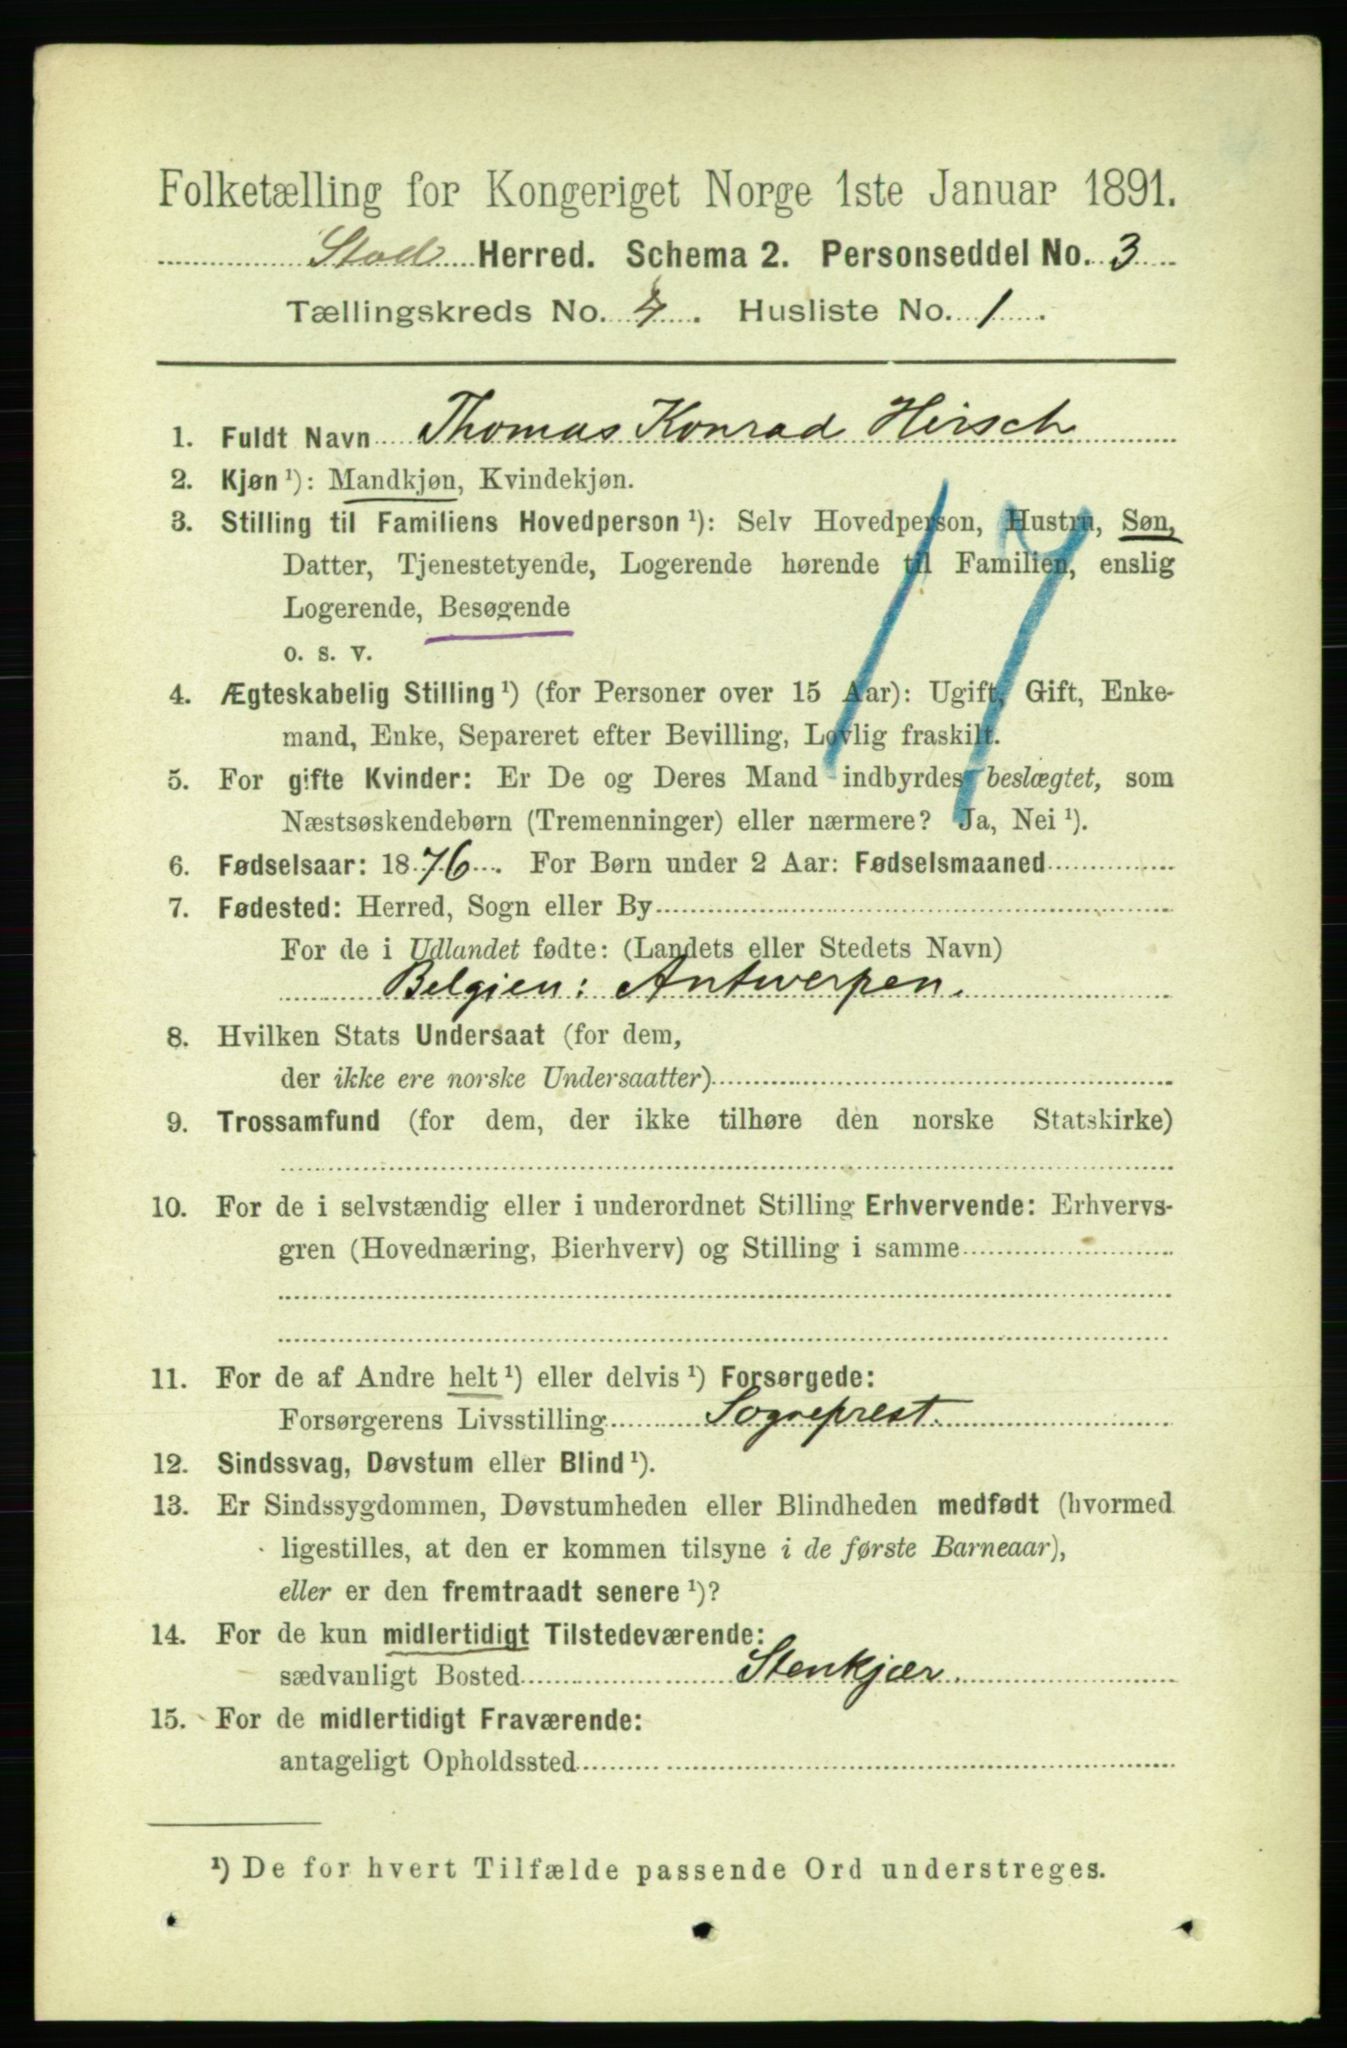 Folketælling for Kongeriget Norge 1ste Januar 1891.
Stod Herred. Schema 2. Personseddel No. 3
Tællingskreds No. 4. Husliste No. 1.
1. Fuldt Navn Thomas Konrad Hirsch
2. Kjøn ¹): Mandkjøn, Kvindekjøn.
3. Stilling til Familiens Hovedperson ¹): Selv Hovedperson, Hustru, Søn,
Datter, Tjenestetyende, Logerende hørende til Familien, enslig
Logerende, Besøgende
o. s. v.
17
4. Ægteskabelig Stilling ¹) (for Personer over 15 Aar): Ugift, Gift, Enke-
mand, Enke, Separeret efter Bevilling, Lovlig fraskilt.
5. For gifte Kvinder: Er De og Deres Mand indbyrdes beslægtet, som
Næstsøskendebørn (Tremenninger) eller nærmere? Ja, Nei ¹).
6. Fødselsaar: 1876. For Børn under 2 Aar: Fødselsmaaned
7. Fødested: Herred, Sogn eller By
For de i Udlandet fødte: (Landets eller Stedets Navn)
Belgien: Antwerpen.
8. Hvilken Stats Undersaat (for dem,
der ikke ere norske Undersaatter)
9. Trossamfund (for dem, der ikke tilhøre den norske Statskirke)
10. For de i selvstændig eller i underordnet Stilling Erhvervende: Erhvervs-
gren (Hovednæring, Bierhverv) og Stilling i samme
11. For de af Andre helt ¹) eller delvis ¹) Forsørgede:
Forsørgerens Livsstilling Sogneprest.
12. Sindssvag, Døvstum eller Blind ¹).
13. Er Sindssygdommen, Døvstumheden eller Blindheden medfødt (hvormed
ligestilles, at den er kommen tilsyne i de første Barneaar),
eller er den fremtraadt senere ¹)?
14. For de kun midlertidigt Tilstedeværende:
sædvanligt Bosted Stenkjær.
15. For de midlertidigt Fraværende:
antageligt Opholdssted
¹) De for hvert Tilfælde passende Ord understreges.